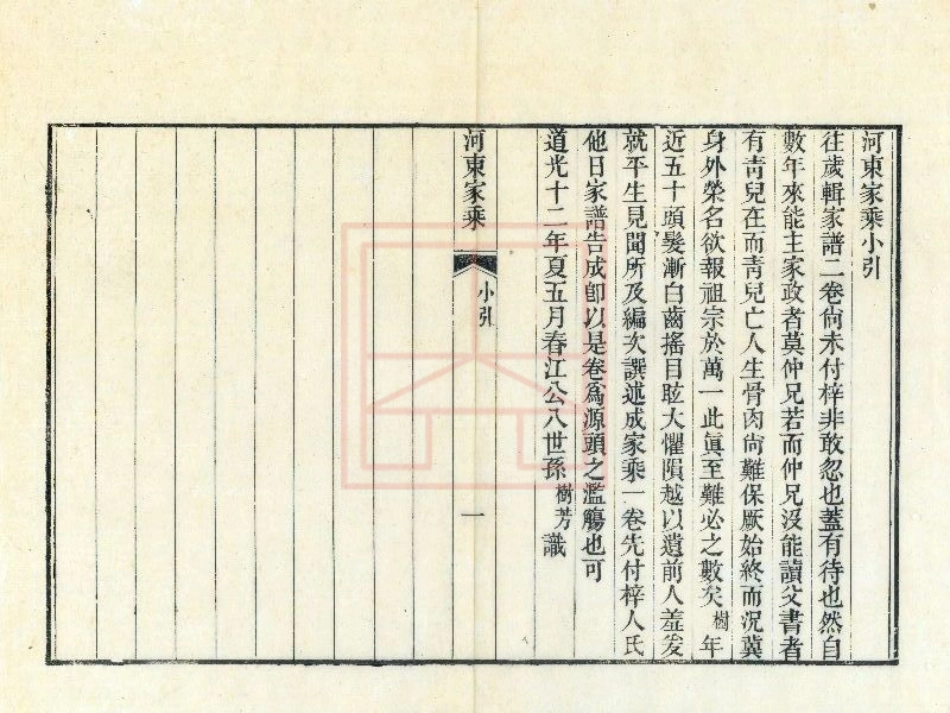 河東家乘小引
往歲輯家譜二卷尙未付梓非敢忽也蓋有待也然自
數年來能主家政者莫仲兄若而仲兄沒能讀父書者
有靑兒在而靑兒亡人生骨肉尙難保厥始終而況冀
身外榮名欲報祖宗於萬一此眞至難必之數矣樹年
近五十頭髮漸白齒搖目眩大懼隕越以遺前人羞爰
就平生見聞所及編次譔述成家乘一卷先付梓人氏
他日家譜告成卽以是卷爲源頭之濫觴也可
道光十二年夏五月春江公八世孫樹芳識
河東家乘
小引
一